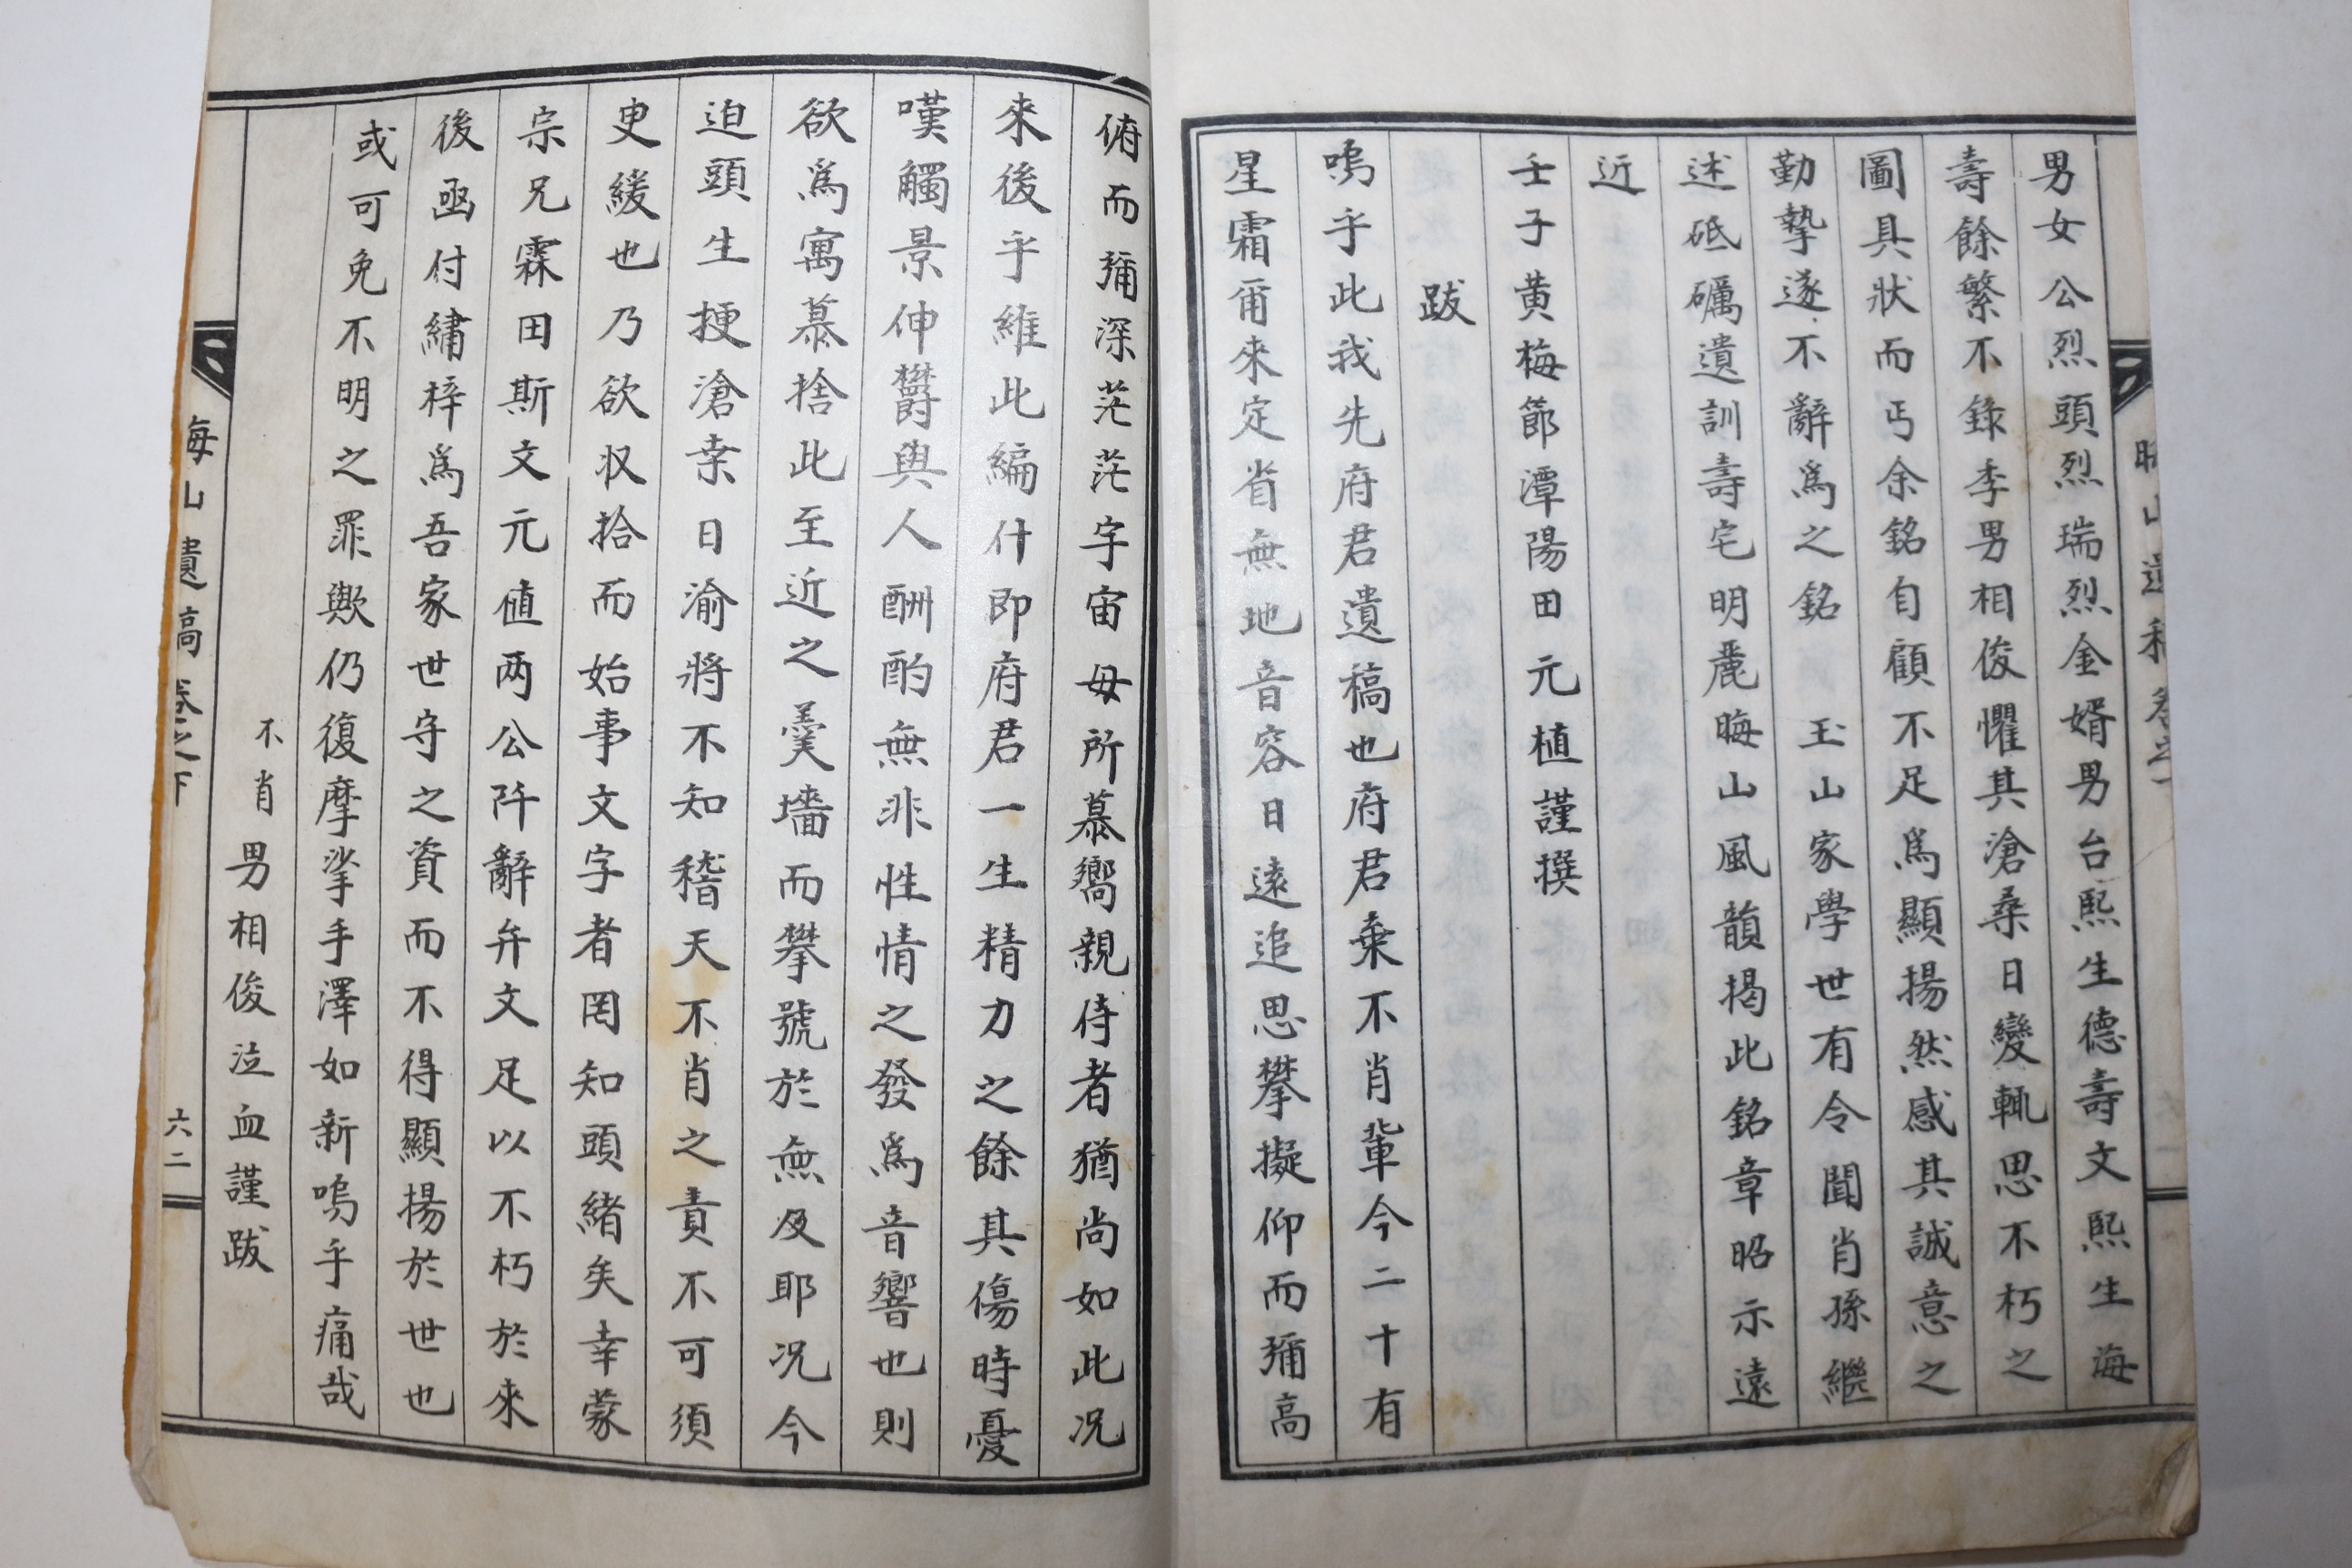 男女公烈頭烈瑞烈金婿男台熙生德壽文熙生海
壽餘繁不錄季男相俊懼其滄桑日變輒思不朽之
圖具狀而丐余銘自顧不足爲顯揚然感其誠意之
勤摯遂不辭爲之銘 玉山家學世有令聞肖孫繼
述砥礪遺訓壽宅明麗晦山風韻揭此銘章昭示遠
近
壬子黄梅節潭陽田元植謹撰
跋
嗚乎此我先府君遺稿也府君棄不肖輩今二十有
星霜甭來定省無地音容日遠追思攀擬仰而彌高
俯而彌深茫茫宇宙毋所慕嚮親侍者猶尚如此况
來後乎維此編什即府君一生精力之餘其傷時憂
嘆觸景伸欝與人酬酌無非性情之發爲音響也則
欲爲寓慕捨此至近之羹墻而攀號於無及耶况今
迫頭生挭滄桒日渝將不知稽天不肖之責不可須
叓緩也乃欲収拾而始事文字者罔知頭緒矣幸蒙
宗兄霖田斯文元植两公阡辭弁文足以不朽於來
後亟付繡梓爲吾家世守之資而不得顯揚於世也
或可免不明之罪歟仍復摩挲手澤如新嗚乎痛哉
不肖男相俊泣血謹跋
晦山遺稿卷之下
六二